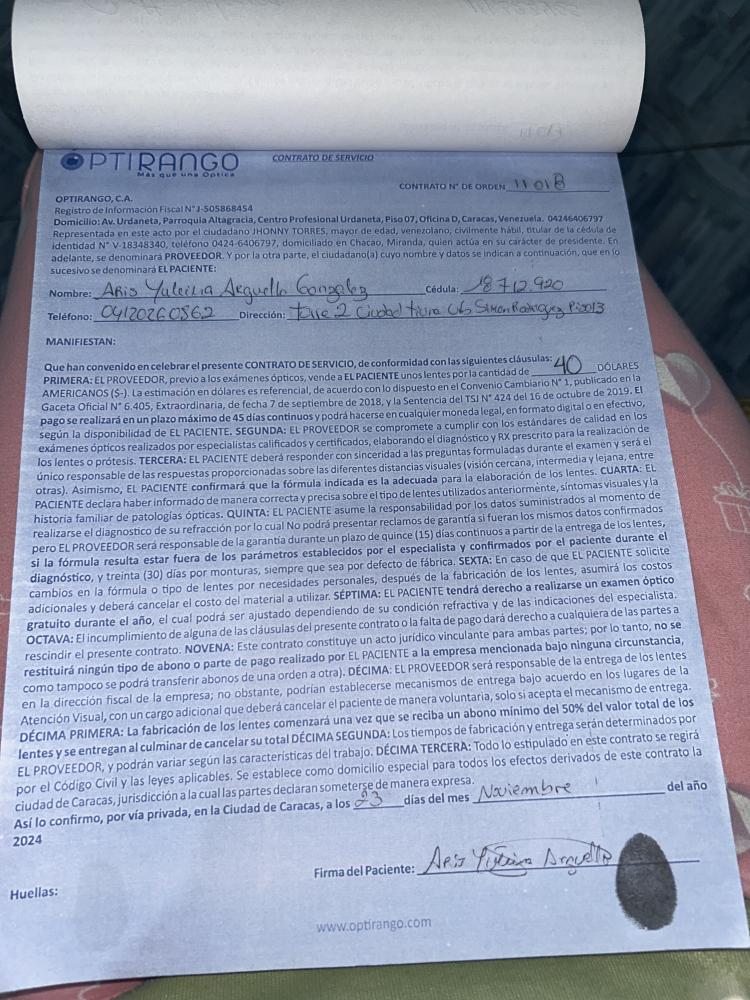 OPTIRANGO
Más que una Óptica
CONTRATO DE SERVICIO
CONTRATO N° DE ORDEN 11018
OPTIRANGO, C.A.
Registro de Información Fiscal N°J-505868454
Domicilio: Av. Urdaneta, Parroquia Altagracia, Centro Profesional Urdaneta, Piso 07, Oficina D, Caracas, Venezuela. 04246406797
Representada en este acto por el ciudadano JHONNY TORRES, mayor de edad, venezolano, civilmente hábil, titular de la cédula de
identidad N° V-18348340, teléfono 0424-6406797, domiciliado en Chacao, Miranda, quien actúa en su carácter de presidente. En
adelante, se denominará PROVEEDOR. Y por la otra parte, el ciudadano(a) cuyo nombre y datos se indican a continuación, que en lo
sucesivo se denominará EL PACIENTE:
Nombre: Aris Yuleilia Arguello Gonzalez Cédula: 18712.920
Teléfono: 04120260862 Dirección: torre 2 Ciudad tiuna Ub Simon Rodriguez Piso 13
MANIFIESTAN:
Que han convenido en celebrar el presente CONTRATO DE SERVICIO, de conformidad con las siguientes cláusulas:
PRIMERA: EL PROVEEDOR, previo a los exámenes ópticos, vende a EL PACIENTE unos lentes por la cantidad de 40 DÓLARES
AMERICANOS ($-). La estimación en dólares es referencial, de acuerdo con lo dispuesto en el Convenio Cambiario N° 1, publicado en la
Gaceta Oficial N° 6.405, Extraordinaria, de fecha 7 de septiembre de 2018, y la Sentencia del TSJ N° 424 del 16 de octubre de 2019. El
pago se realizará en un plazo máximo de 45 días continuos y podrá hacerse en cualquier moneda legal, en formato digital o en efectivo,
según la disponibilidad de EL PACIENTE. SEGUNDA: EL PROVEEDOR se compromete a cumplir con los estándares de calidad en los
exámenes ópticos realizados por especialistas calificados y certificados, elaborando el diagnóstico y RX prescrito para la realización de
los lentes o prótesis. TERCERA: EL PACIENTE deberá responder con sinceridad a las preguntas formuladas durante el examen y será el
único responsable de las respuestas proporcionadas sobre las diferentes distancias visuales (visión cercana, intermedia y lejana, entre
otras). Asimismo, EL PACIENTE confirmará que la fórmula indicada es la adecuada para la elaboración de los lentes. CUARTA: EL
PACIENTE declara haber informado de manera correcta y precisa sobre el tipo de lentes utilizados anteriormente, síntomas visuales y la
historia familiar de patologías ópticas. QUINTA: EL PACIENTE asume la responsabilidad por los datos suministrados al momento de
realizarse el diagnostico de su refracción por lo cual No podrá presentar reclamos de garantía si fueran los mismos datos confirmados
pero EL PROVEEDOR será responsable de la garantía durante un plazo de quince (15) días continuos a partir de la entrega de los lentes,
si la fórmula resulta estar fuera de los parámetros establecidos por el especialista y confirmados por el paciente durante el
diagnóstico, y treinta (30) días por monturas, siempre que sea por defecto de fábrica. SEXTA: En caso de que EL PACIENTE solicite
cambios en la fórmula o tipo de lentes por necesidades personales, después de la fabricación de los lentes, asumirá los costos
adicionales y deberá cancelar el costo del material a utilizar. SÉPTIMA: EL PACIENTE tendrá derecho a realizarse un examen óptico
gratuito durante el año, el cual podrá ser ajustado dependiendo de su condición refractiva y de las indicaciones del especialista.
OCTAVA: El incumplimiento de alguna de las cláusulas del presente contrato o la falta de pago dará derecho a cualquiera de las partes a
rescindir el presente contrato. NOVENA: Este contrato constituye un acto jurídico vinculante para ambas partes; por lo tanto, no se
restituirá ningún tipo de abono o parte de pago realizado por EL PACIENTE a la empresa mencionada bajo ninguna circunstancia,
como tampoco se podrá transferir abonos de una orden a otra). DÉCIMA: EL PROVEEDOR será responsable de la entrega de los lentes
en la dirección fiscal de la empresa; no obstante, podrían establecerse mecanismos de entrega bajo acuerdo en los lugares de la
Atención Visual, con un cargo adicional que deberá cancelar el paciente de manera voluntaria, solo si acepta el mecanismo de entrega.
DÉCIMA PRIMERA: La fabricación de los lentes comenzará una vez que se reciba un abono mínimo del 50% del valor total de los
lentes y se entregan al culminar de cancelar su total DÉCIMA SEGUNDA: Los tiempos de fabricación y entrega serán determinados por
EL PROVEEDOR, y podrán variar según las características del trabajo. DÉCIMA TERCERA: Todo lo estipulado en este contrato se regirá
por el Código Civil y las leyes aplicables. Se establece como domicilio especial para todos los efectos derivados de este contrato la
ciudad de Caracas, jurisdicción a la cual las partes declaran someterse de manera expresa.
Así lo confirmo, por vía privada, en la Ciudad de Caracas, a los 23 días del mes Noviembre del año
2024
Firma del Paciente: Aris Arguello
Huellas:
www.optirango.com